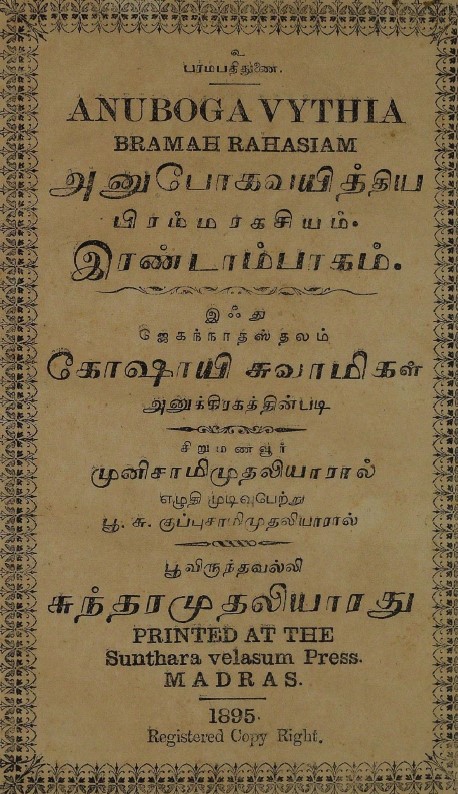 உ
பரம்பதிதுணை.
ANUBOGA VYTHIA
BRAMAH RAHASIAM
அனுபோகவயித்திய
பிரம்மரகசியம்.
இரண்டாம்பாகம்.
இஃது
ஜெகந்நாதஸ்தலம்
கோஷாயி சுவாமிகள்
அனுக்கிரகத்தின்படி
சிறுமணவூர்
முனிசாமிமுதலியாரால்
எழுதி முடிவுபெற்று
பூ. சு. குப்புசாமிமுதலியாரால்
பூவிருந்தவல்லி
சுந்தரமுதலியாரது
PRINTED AT THE
Sunthara velasum Press.
MADRAS.
1895.
Registered Copy Right.